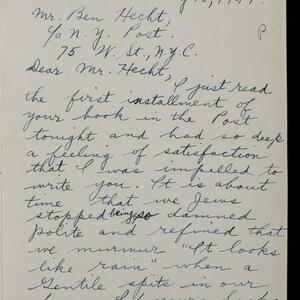 Mr. Ben Hecht,
c/o N.Y. Post.
P.
75 W. St., N.Y.C.
Dear Mr. Hecht,
I just read
the first installment of
your book in the Post
tonight and had so deep
a feeling of satisfaction
that I was impelled to
write you. It is about
time that we Jews
stopped being so damned
polite and refined that
we murmur "It looks
like rain" when a
Gentile spits in our